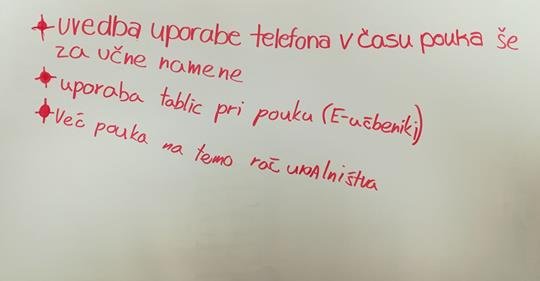 uvedba uporabe telefona v času pouka še
za učne namene
uporaba tablic pri pouku (E-učbeniki)
Več pouka na temo računalništva